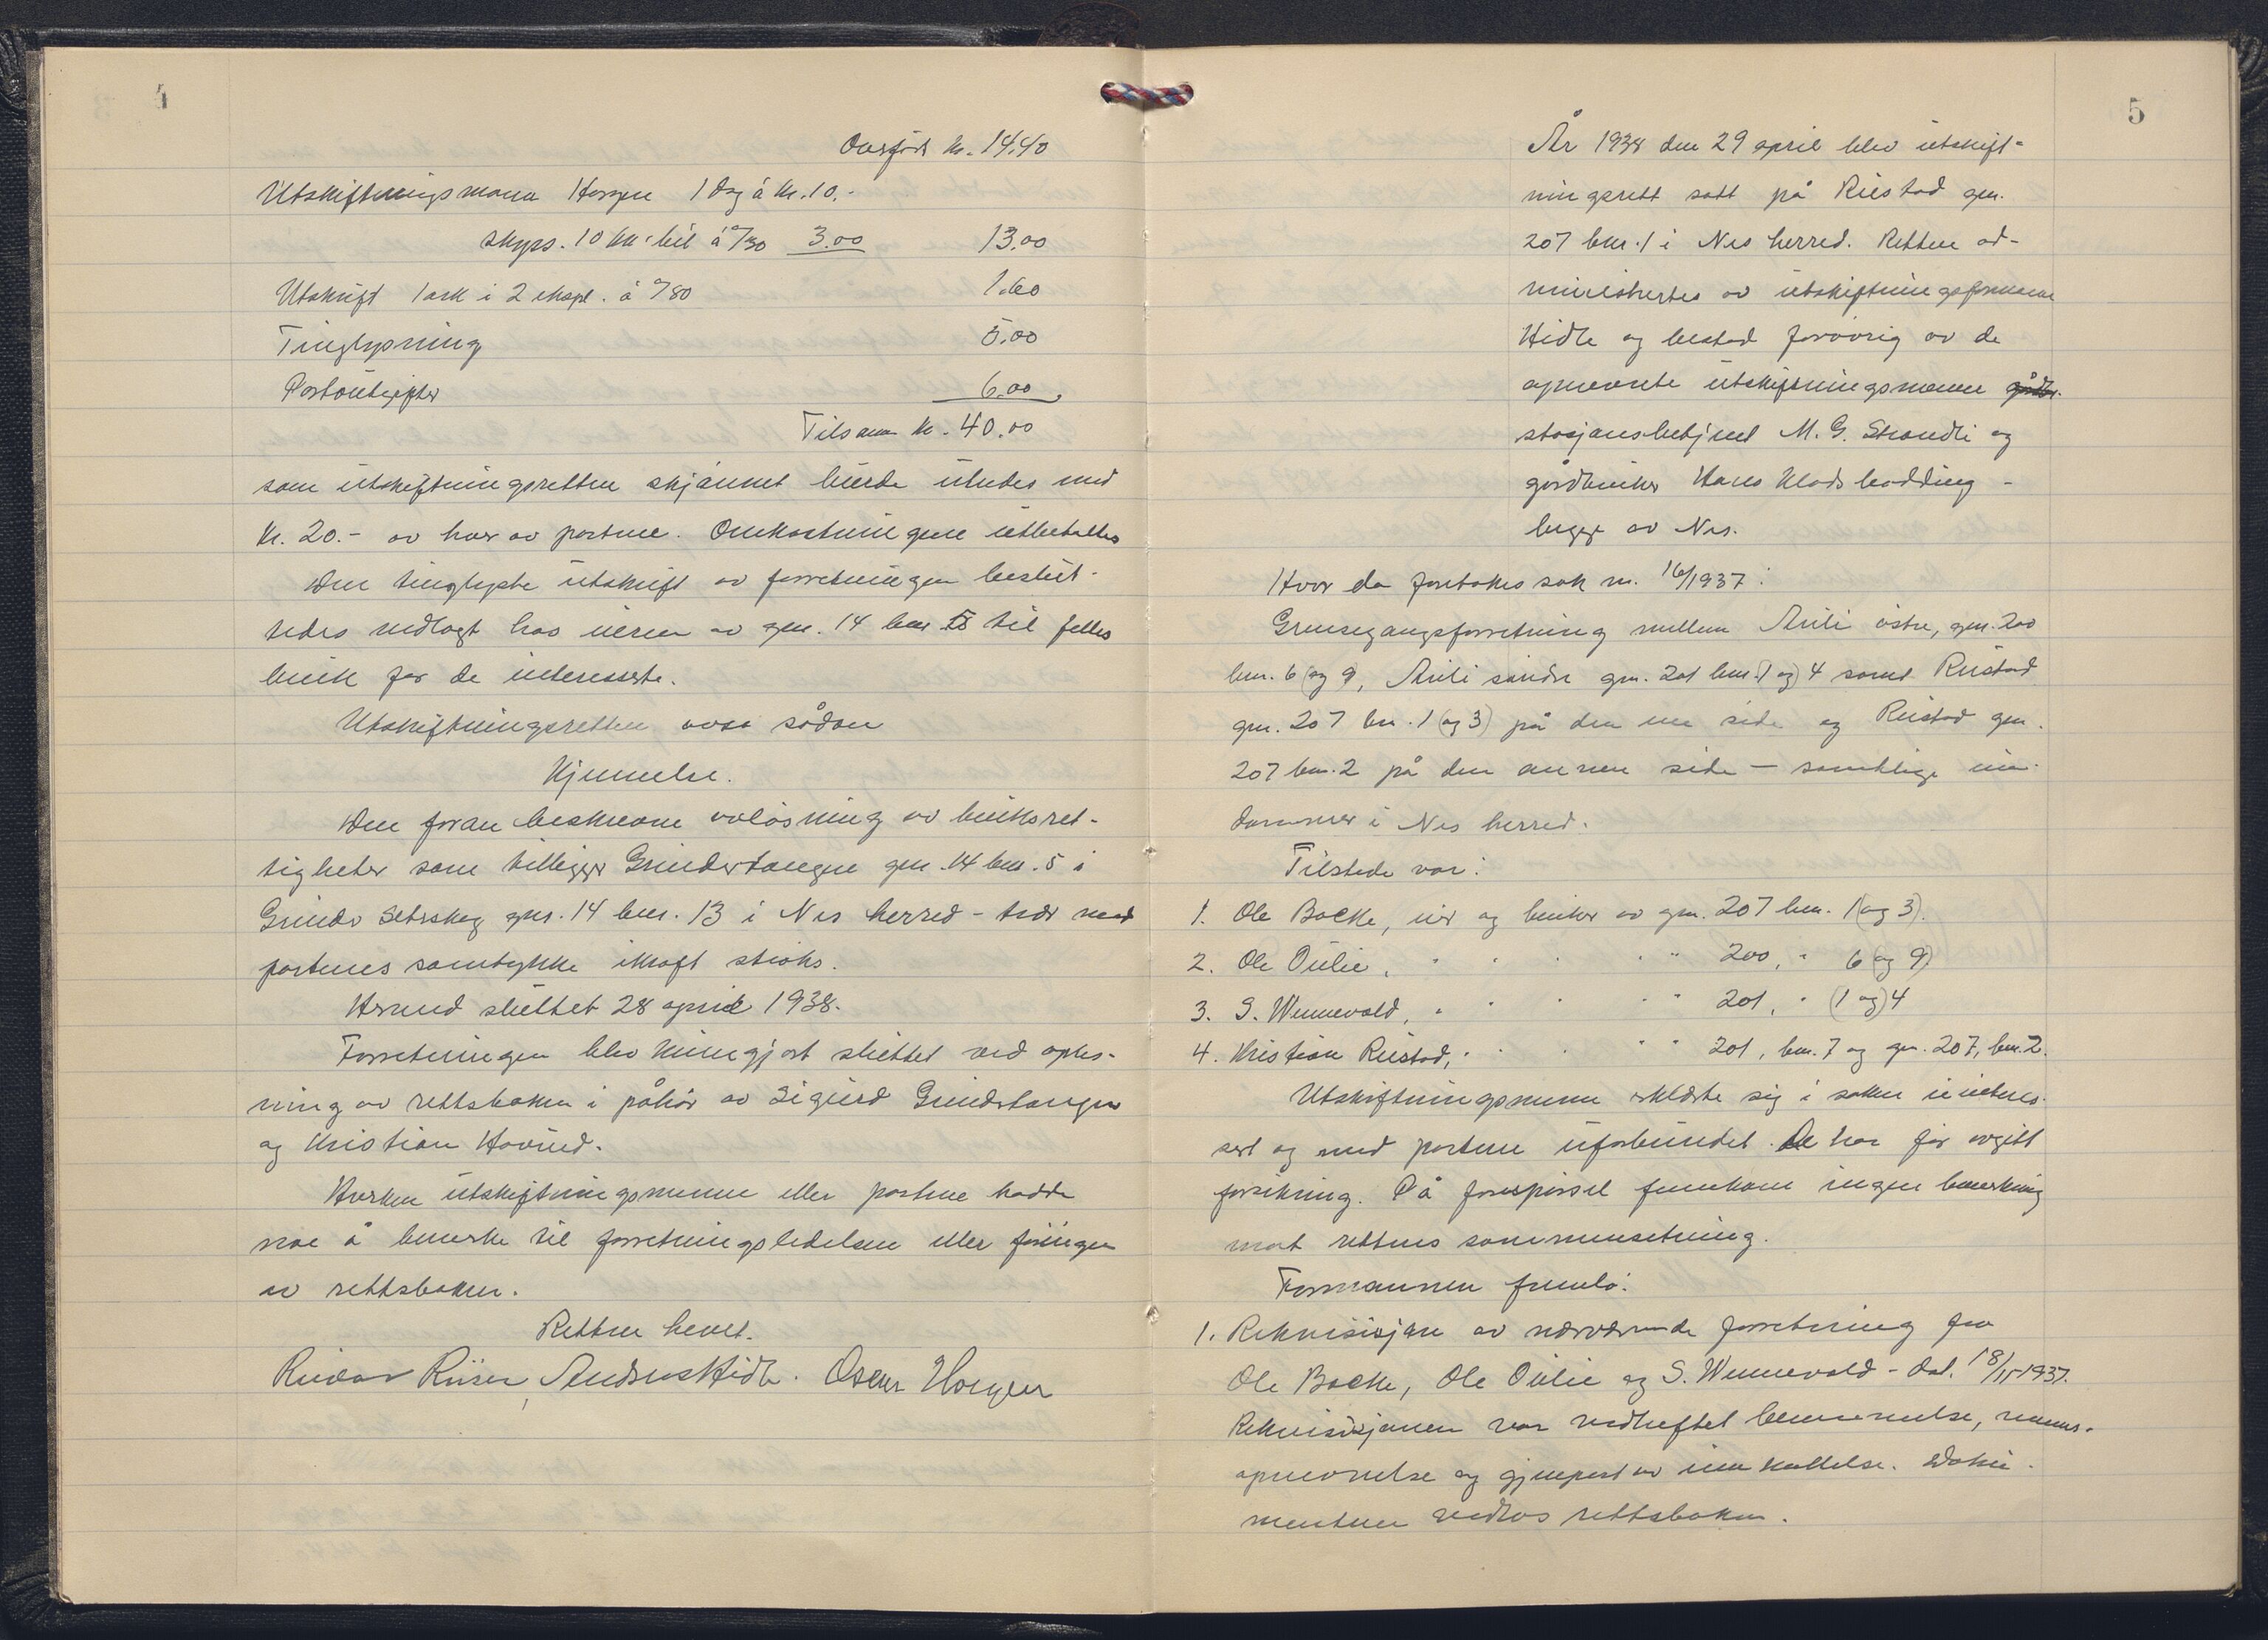 4
Overført kr. 14.40
Utskiftningsmann Horgen 1 dag á kr. 10.-
skyss. 10 km. bil á º/30 3.00 13.00
Utskrift 1 ark i 2 ekspl. á º/80 1.60
Tinglysning 5.00
Portoutgifter 6.00
Tilsam. kr. 40.00
som utskiftningsretten skjønnet burde utredes med
kr. 20.- av hver av partene. Omkostningene utbetaltes
Den tinglyste utskrift av forretningen beslut-
tedes nedlagt hos eieren av gnr. 14 bnr. 13 til felles
bruk for de interesserte.
Utskiftningsretten avsa sådan
Kjennelse.
Den foran beskrevne avløsning av bruksret-
tigheter som tilligger Grinderstangen gnr. 14 bnr. 5 i
Grinder Seterskog gnr. 14 bnr. 13 i Nes herred - trær med
partenes samtykke ikraft straks.
Herred sluttet 28 april 1938.
Forretningen blev kunngjort sluttet ved oples-
ning av rettsboken i påhør av Sigurd Grinderstangen
og Kristian Hovind.
Hverken utskiftningsmenn eller partene hadde
noe å bemerke til forretningsledelsen eller føringen
av rettsboken.
Retten hevet.
Reidar Riiser, Andreas Hidle. Oscar Horgen
5
År 1938 den 29 april blev utskift-
ningsrett satt på Rustad gnr.
207 bnr. 1 i Nes herred. Retten ad-
ministrertes av utskiftningsformann
Hidle og bestod forøvrig av de
opnevnte utskiftningsmenn gårdbr.
stasjonsbetjent M. G. Strandli og
gårdbruker Hans Kladsbødding -
begge av Nes.
Hvor da foretokes sak nr. 16/1937:
Grensegangsforretning mellem Auli østre, gnr. 200
bnr. 6 (og 9), Auli søndre gnr. 201 bnr. (1 og) 4 samt Rustad
gnr. 207 bnr. 1 (og 3) på den ene side og Rustad gnr.
207 bnr. 2 på den annen side - samtlige eien-
dommer i Nes herred.
Tilstede var:
1. Ole Bocke, eier og bruker av gnr. 207 bnr. 1 (og 3).
2. Ole Oulie, " " " " " 200, " 6 (og 9)
3. S. Wennevold, " " " " " 201, " (1 og) 4
4. Kristian Rustad, " " " " " 201, bnr. 7 og gnr. 207, bnr. 2.
Utskiftningsmenn erklærte sig i saken uinteres-
sert og med partene uforbundet. De har før avgitt
forsikring. På forespørsel fremkom ingen bemerkning
mot rettens sammensetning.
Formannen fremla:
1. Rekvisisjon av nærværende forretning fra
Ole Bocke, Ole Oulie og S. Wennevold - dat. 18/11-1937.
Rekvisisjonen var vedheftet berammelse, menns-
opnevnelse og gjenpart av innkallelse. Doku-
mentene vedlas rettsboken.